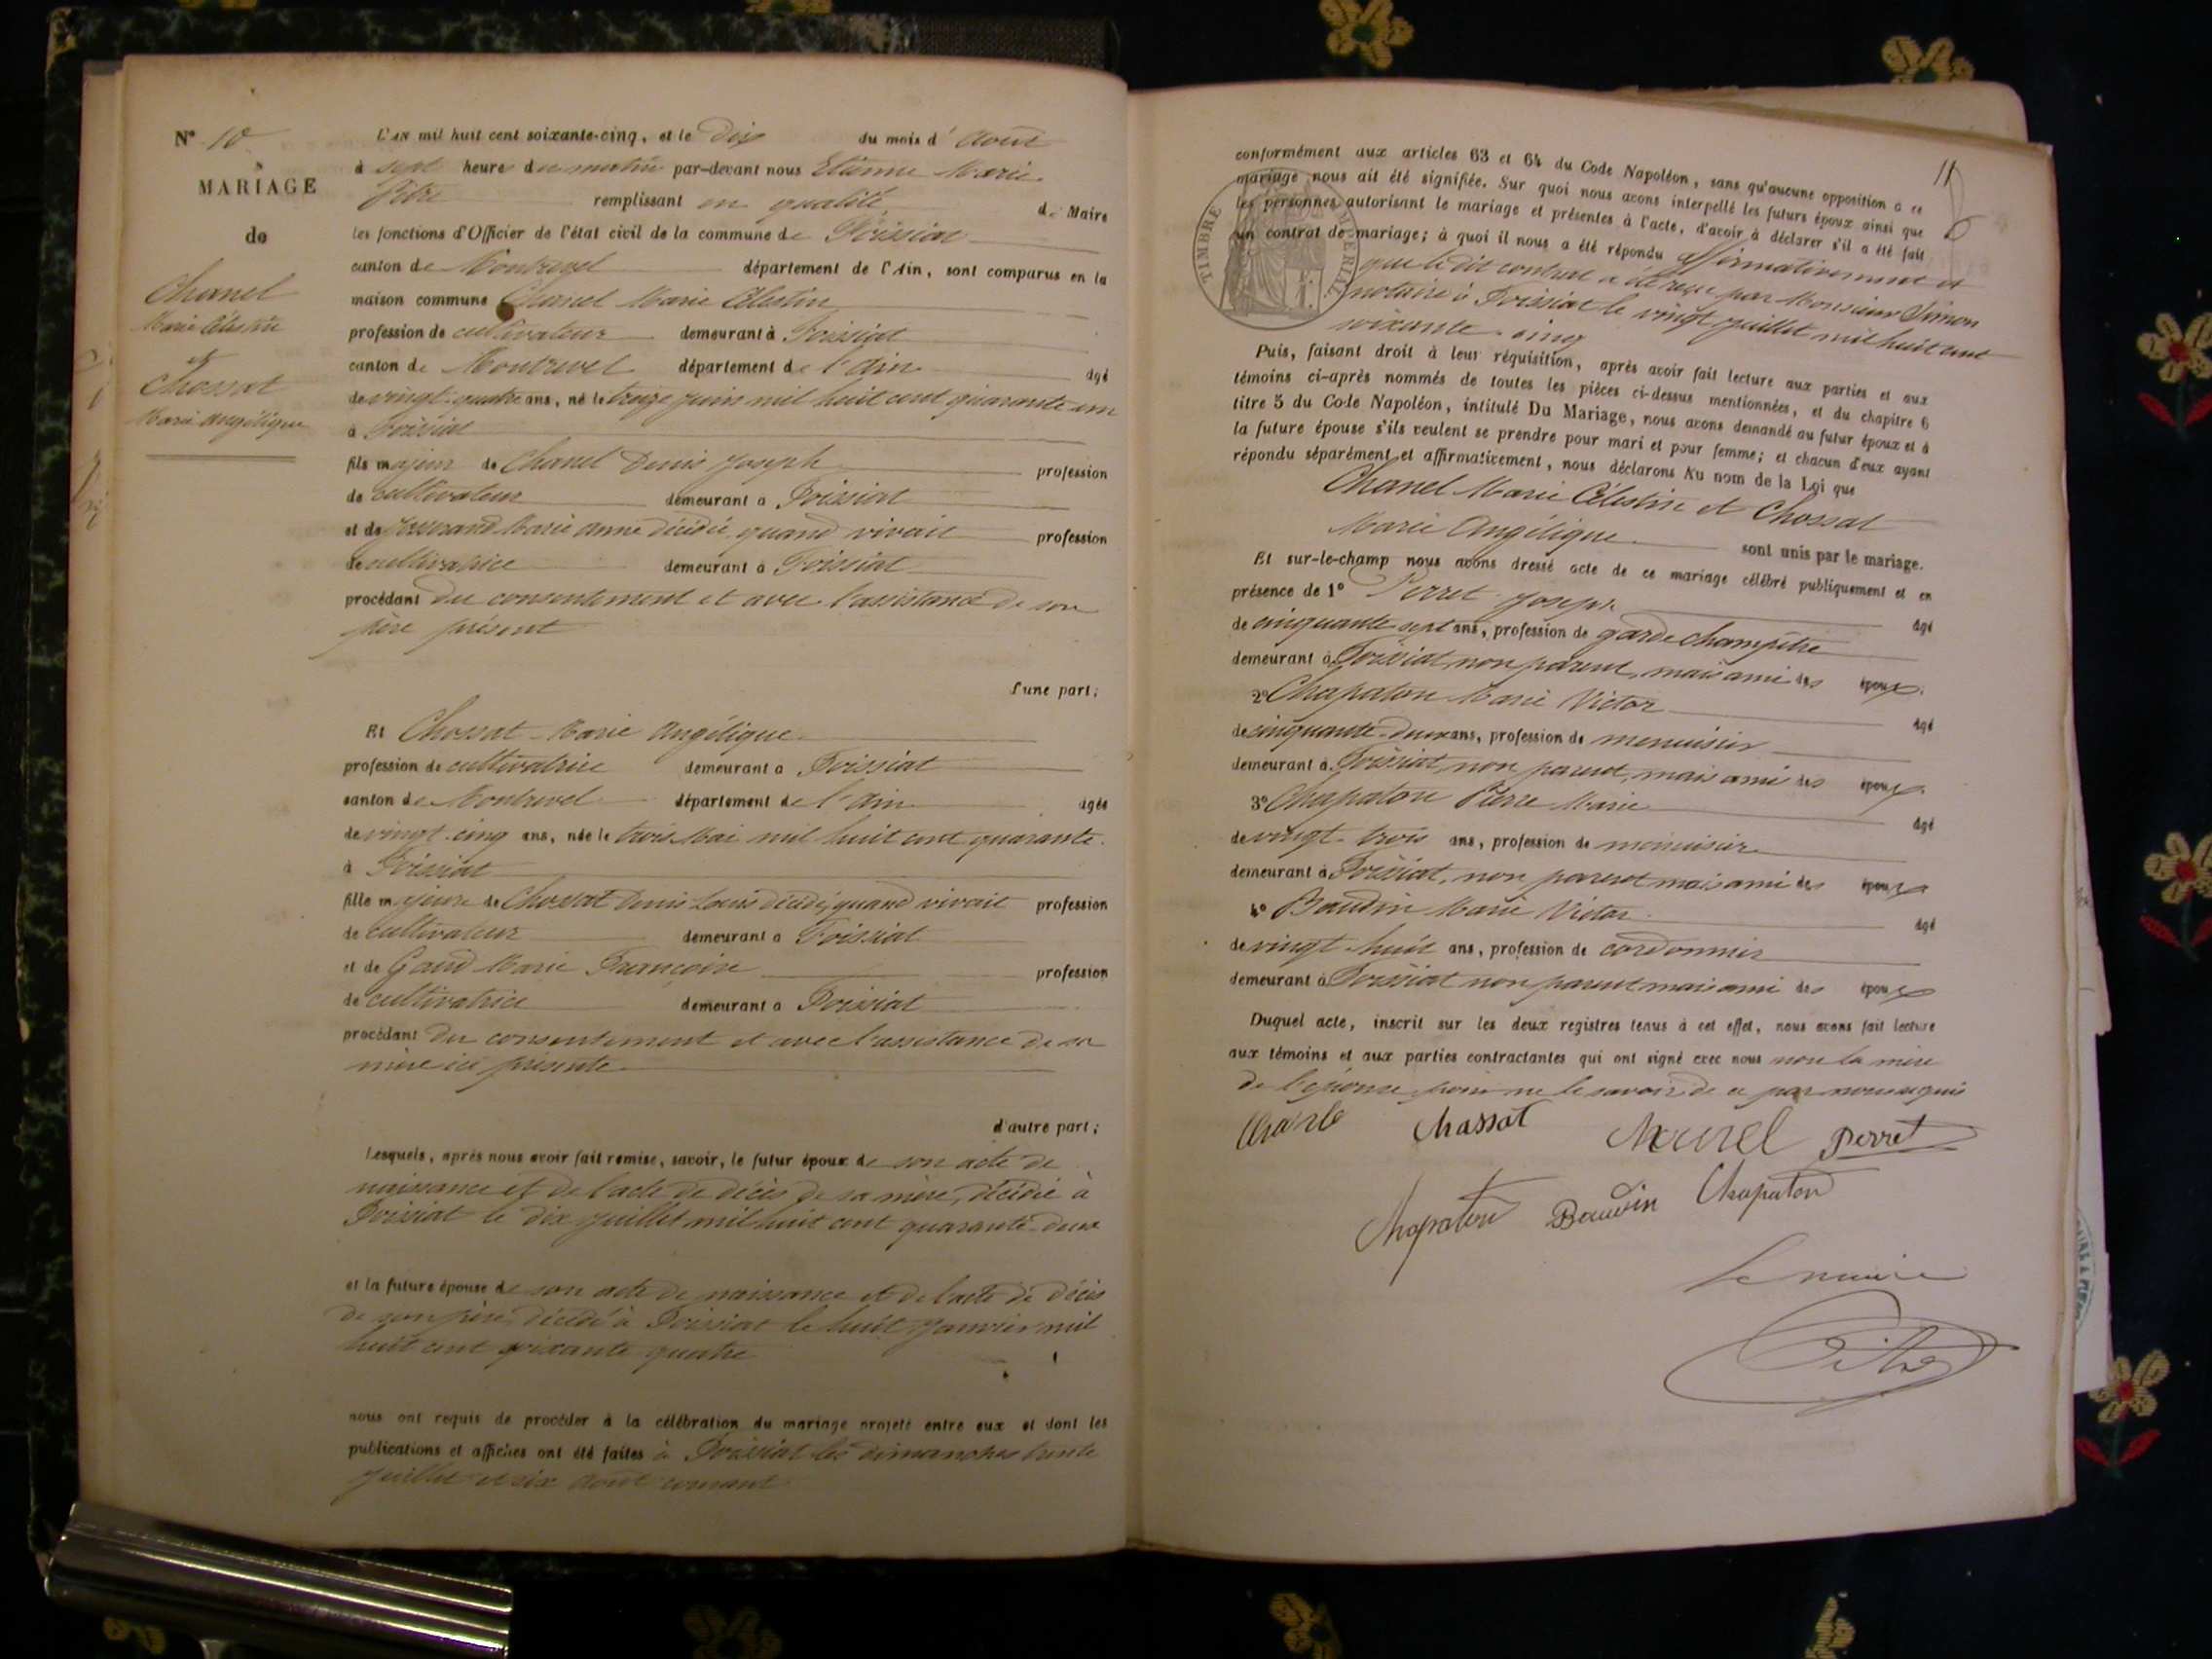 Nº 10
MARIAGE
de
Chanel
Marie Célestin
et
Chossat
Marie Angélique
L'AN mil huit cent soixante-cinq, et le dix du mois d'Août
à sept heures du matin par-devant nous Etienne Marie
Pitre remplissant en qualité de Maire
les fonctions d'Officier de l'état civil de la commune de Foissiat
canton de Montrevel département de l'Ain, sont comparus en la
maison commune Chanel Marie Célestin
profession de cultivateur demeurant à Foissiat
canton de Montrevel département de l'Ain âgé
de vingt-quatre ans, né le treize juin mil huit cent quarante un
à Foissiat
fils majeur de Chanel Denis Joseph profession
de cultivateur demeurant à Foissiat
et de Marie Anne décédée quand vivait profession
de cultivatrice demeurant à Foissiat
procédant du consentement et avec l'assistance de son
père présent
d'une part;
Et Chossat Marie Angélique
profession de cultivatrice demeurant à Foissiat
canton de Montrevel département de l'Ain âgée
de vingt-cinq ans, née le trois Mai mil huit cent quarante
à Foissiat
fille majeure de Chossat Denis Louis décédé, quand vivait profession
de cultivateur demeurant à Foissiat
et de Gaud Marie Françoise profession
de cultivatrice demeurant à Foissiat
procédant du consentement et avec l'assistance de sa
mère ici présente
d'autre part;
Lesquels, après nous avoir fait remise, savoir, le futur époux de son acte de
naissance et de l'acte de décès de sa mère, décédée à
Foissiat le dix juillet mil huit cent quarante-deux
et la future épouse de son acte de naissance et de l'acte de décès
de son père, décédé à Foissiat le huit janvier mil
huit cent soixante quatre
nous ont requis de procéder à la célébration du mariage projeté entre eux et dont les
publications et affiches ont été faites à Foissiat les dimanches trente
juillet et six août courant
11
conformément aux articles 63 et 64 du Code Napoléon, sans qu'aucune opposition à ce
mariage nous ait été signifiée. Sur quoi nous avons interpellé les futurs époux ainsi que
les personnes autorisant le mariage et présentes à l'acte, d'avoir à déclarer s'il a été fait
un contrat de mariage; à quoi il nous a été répondu affirmativement et
que le dit contrat a été reçu par Monsieur Simon
notaire à Foissiat le vingt juillet mil huit cent
soixante-cinq
TIMBRE IMPERIAL
Puis, faisant droit à leur réquisition, après avoir fait lecture aux parties et aux
témoins ci-après nommés de toutes les pièces ci-dessus mentionnées, et du chapitre 6
titre 5 du Code Napoléon, intitulé Du Mariage, nous avons demandé au futur époux et à
la future épouse s'ils veulent se prendre pour mari et pour femme; et chacun d'eux ayant
répondu séparément et affirmativement, nous déclarons AU nom de la Loi que
Chanel Marie Célestin et Chossat
Marie Angélique sont unis par le mariage.
Et sur-le-champ nous avons dressé acte de ce mariage célébré publiquement et en
présence de 1º Perret Joseph âgé
de cinquante sept ans, profession de garde champêtre
demeurant à Foissiat non parent, mais ami des époux.
2º Chapaton Marie Victor âgé
de cinquante-deux ans, profession de menuisier
demeurant à Foissiat, non parent, mais ami des époux.
3º Chapaton Pierre Marie âgé
de vingt-trois ans, profession de menuisier
demeurant à Foissiat, non parent mais ami des époux
4º Baudin Marie Victor âgé
de vingt-huit ans, profession de cordonnier
demeurant à Foissiat non parent mais ami des époux
Duquel acte, inscrit sur les deux registres tenus à cet effet, nous avons fait lecture
aux témoins et aux parties contractantes qui ont signé avec nous non la mère
de l'épouse pour ne le savoir de ce par nous requis
Chossat Perret
Chapaton Baudin Chapaton
Le maire
Pitre